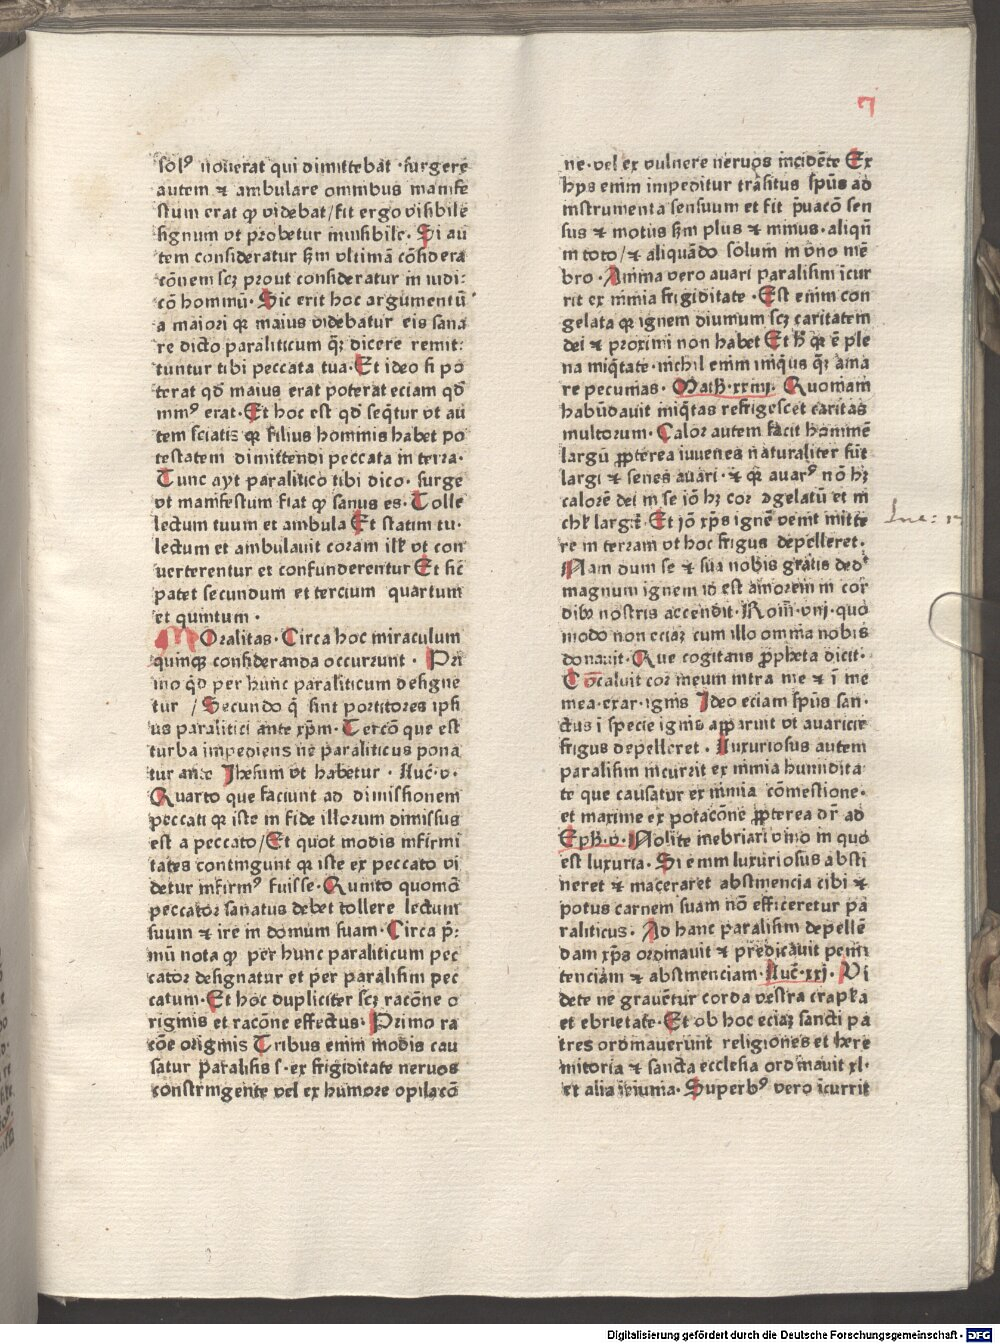 7
solꝰ nouerat qui dimittebat ·surgere
autem ⁊ ambulare omnibus manife
stum erat ꝙ videbat/fit ergo visibile
signum vt probetur inuisibile· Si au
tem consideratur ẜm vltimā cōsidera
cōnem scꝫ prout consideratur in iudi:
cō hominū· Sic erit hoc argumentū
a maiori qꝛ maius videbatur eis sana
re dicto paraliticum qͣꝫ dicere remit:
tuntur tibi peccata tua· Et ideo si po
terat qd̄ maius erat poterat eciam qd̄
minꝰ erat· Et hoc est qd̄ seq̄tur vt au
tem sciatis qꝛ filius hominis habet po
testatem dimittendi peccata in terra·
Tunc ayt paralitico tibi dico· surge
vt manifestum fiat ꝙ sanus es· Tolle
lectum tuum et ambula Et statim tu·
lectum et ambulauit coram ill̕ vt con
uerterentur et confunderentur Et sic̄
patet secundum et tercium quartum
et quintum·
MOralitas· Circa hoc miraculum
quinqꝫ consideranda occurrunt · Pri
mo qͥd per hunc paraliticum designe
tur / Secundo q̄ sint portitores ipsi
us paralitici ante xp̄m· Tercō que est
turba impediens ne paraliticus pona
tur ante Jhesum vt habetur · Luc̄·v·
Quarto que faciunt ad dimissionem
peccati qꝛ iste in fide illorum dimissus
est a peccato/Et quot modis infirmi
tates contingunt qꝛ iste ex peccato vi
detur infirmꝰ fuisse· Quinto quomō
peccator sanatus debet tollere lectum
suum ⁊ ire in domum suam· Circa p̄:
mū nota ꝙ per hunc paraliticum pec
cator designatur et per paralisim pec
catum· Et hoc dupliciter scꝫ racōne o
riginis et racōne effectus· Primo ra
cōe originis Tribus enim modis cau
satur paralisis s· ex frigiditate neruos
constringente vel ex humore opilacō
ne·vel ex vulnere neruos incidēte Ex
hys enim impeditur trāsitus sp̄us ad
instrumenta sensuum et fit p̄uacō sen
sus ⁊ motus ẜm plus ⁊ minus·aliqn̄
in toto/⁊ aliquādo solum in vno mē
bro· Anima vero auari paralisim īcur
rit ex nimia frigiditate· Est enim con
gelata qꝛ ignem diuinum scꝫ caritatem
dei ⁊ proximi non habet Et h̄ qꝛ ē ple
na iniq̄tate·nichil enim iniq̄us qͣꝫ ama
re pecunias· Math̄·xxiiij· Quoniam
habūdauit iniq̄tas refrigescet caritas
multorum· Calor autem facit hominē
largū ꝓpterea iuuenes naturaliter sūt
largi ⁊ senes auari· ⁊ qꝛ auarꝰ nō hꝫ
calorē dei in se iō hꝫ cor ꝯgelatū et in
Et iō xp̄s ignē venit mitte
re in terram vt hoc frigus depelleret·
Nam dum se ⁊ sua nobis gratis ded̕
magnum ignem id est amorem in cor
dibꝫ nostris accendit· Rom̄·viij·quo
modo non eciaꝫ cum illo omnia nobis
donauit· Que cogitans ꝓpheta dicit·
Cōcaluit cor meum intra me ⁊ ī me
mea·exar·ignis Ideo eciam sp̄us san·
ctus ī specie ignis apparuit vt auaricie
frigus depelleret · Luxuriosus autem
paralisim incurrit ex nimia humidita·
te que causatur ex nimia cōmestione·
et maxime ex potacōne ꝓpterea dr̄ ad
Eph̄·v· Nolite inebriari vino in quo
est luxuria· Si enim luxuriosus absti
neret ⁊ maceraret abstinencia cibi ⁊
potus carnem suam nō efficeretur pa
raliticus· Ad hanc paralisim depellē
dam xp̄s ordinauit ⁊ predicauit peni
tenciam ⁊ abstinenciam· Luc̄·xxj· Vi
dete ne grauētur corda vestra crapula
et ebrietate· Et ob hoc eciaꝫ sancti pa
tres ordinauerunt religiones et here
mitoria ⁊ sancta ecclesia ordinauit xl·
et alia ieiunia· Superbꝰ vero īcurrit
Digitalisierung gefördert durch die Deutsche Forschungsgemeinschaft - DFG